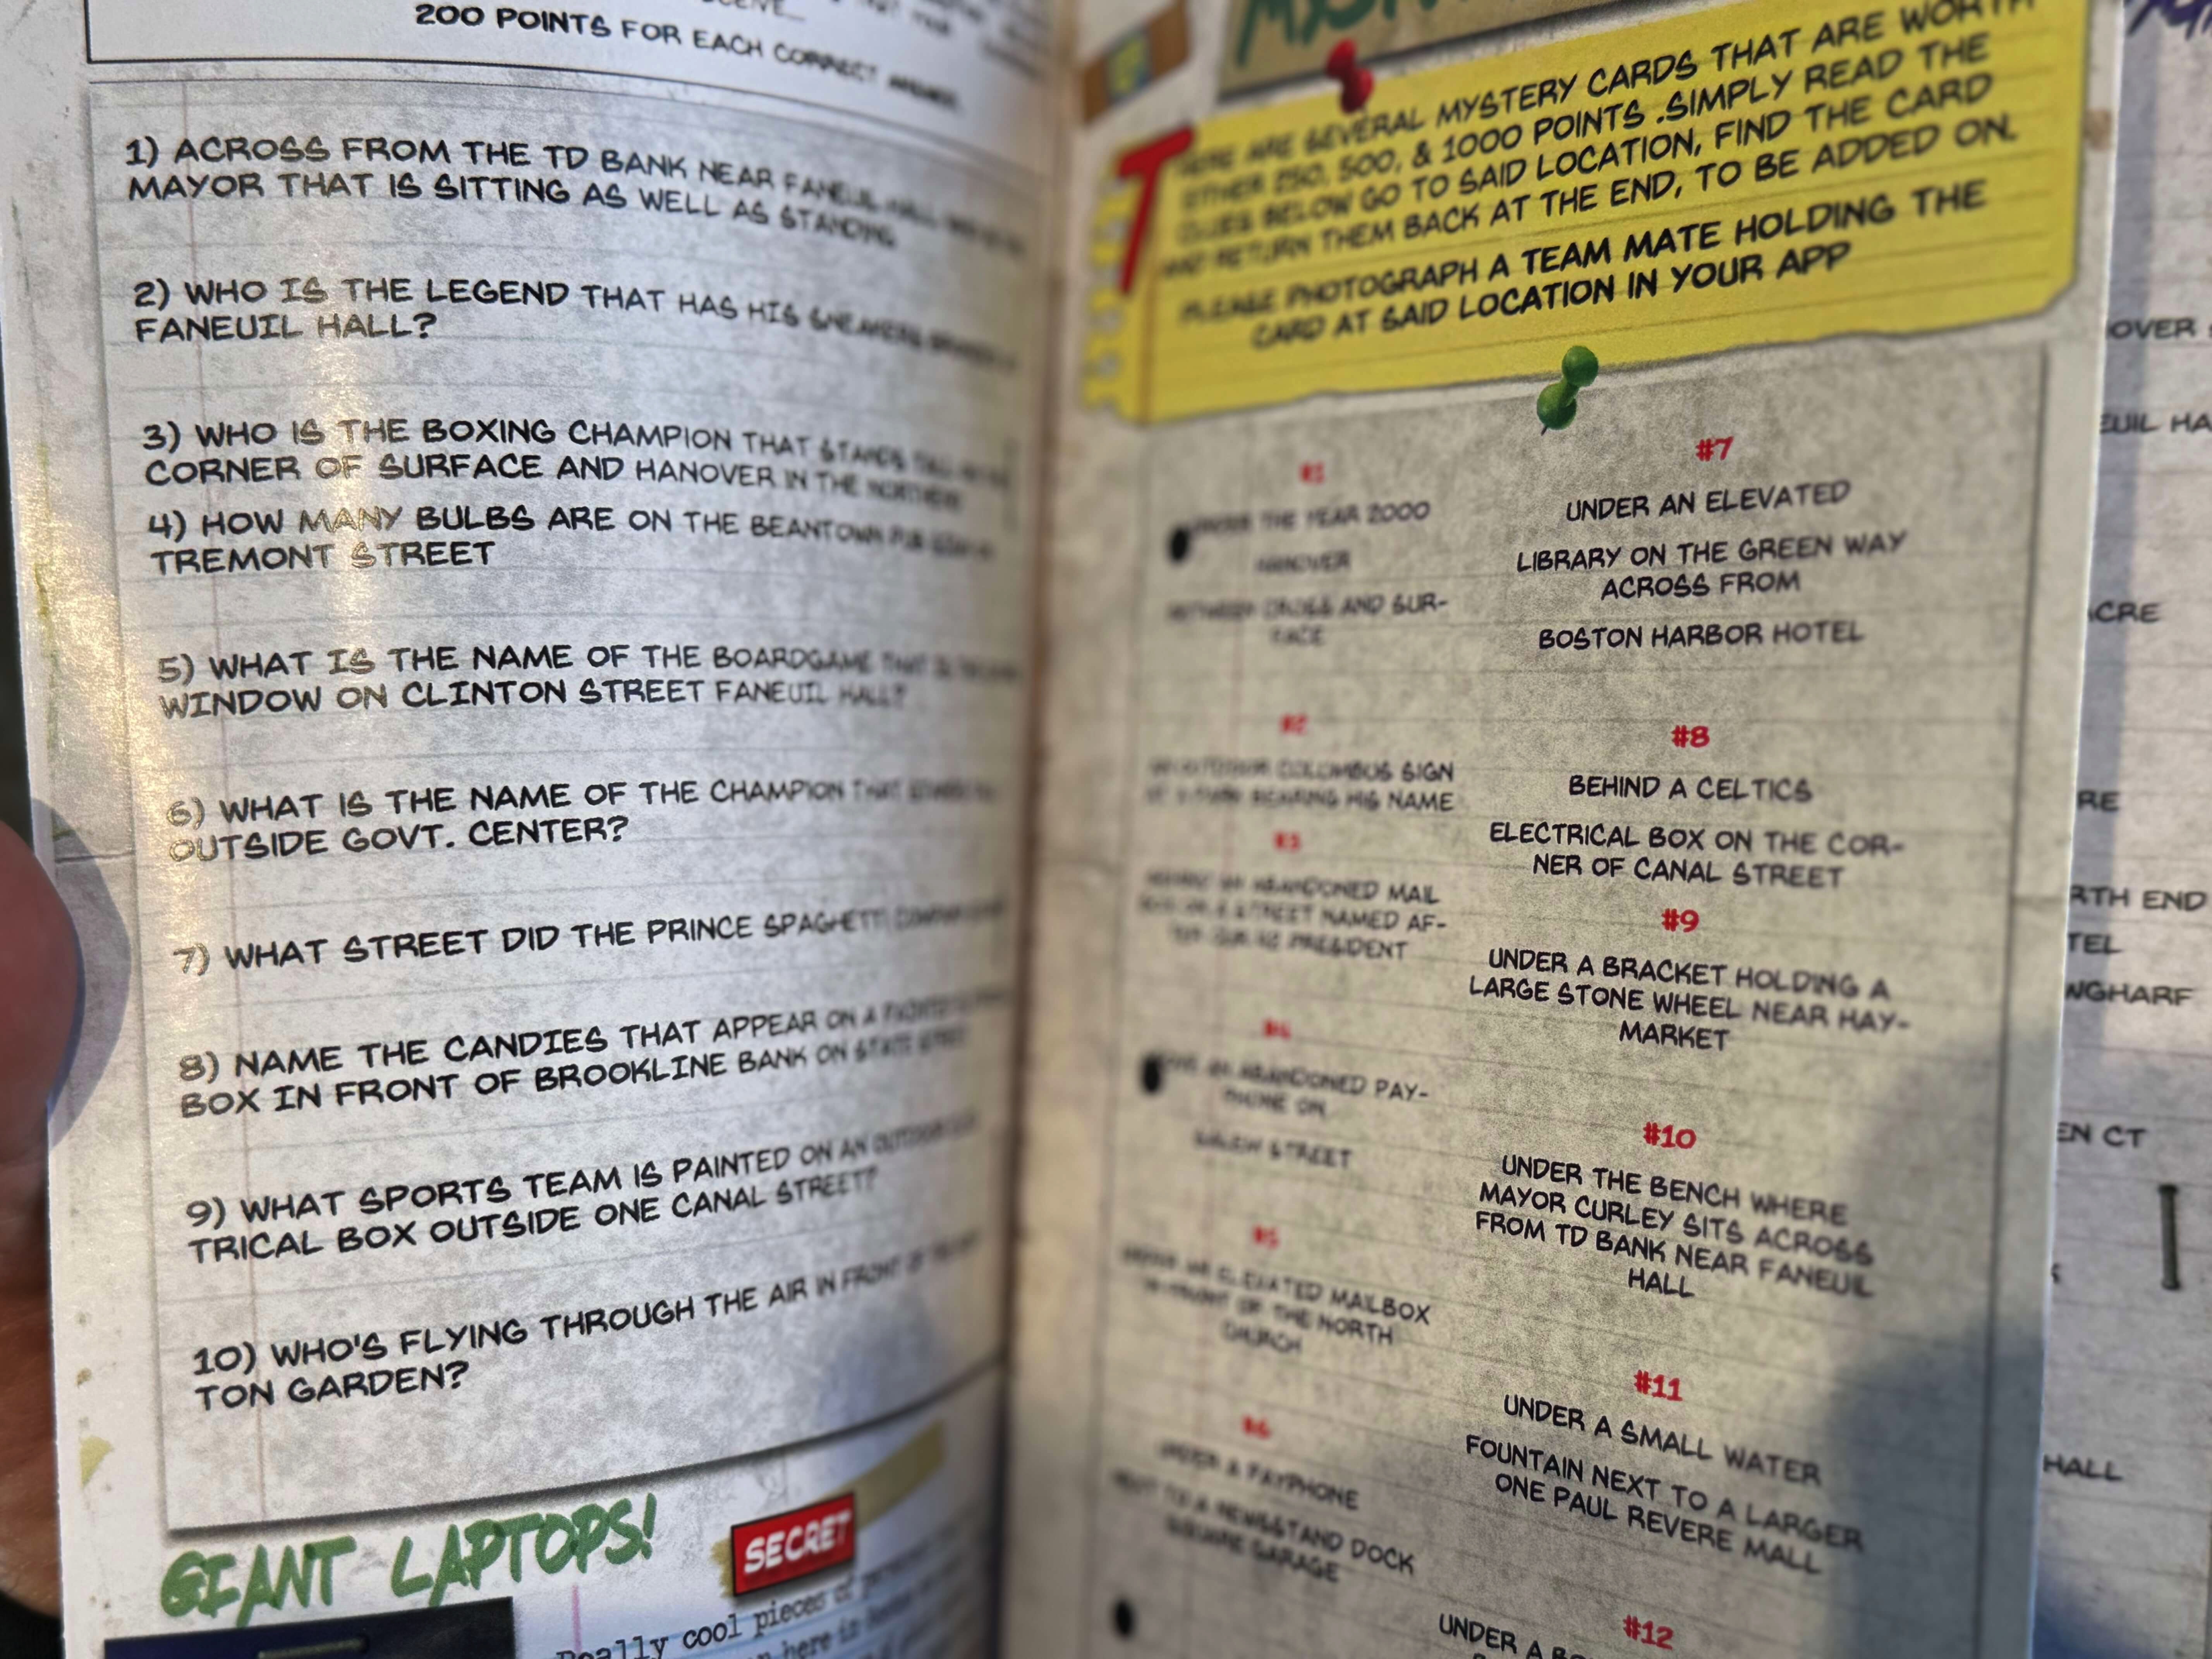 200 POINTS FOR EACH CORRECT ANSWER.
1) ACROSS FROM THE TD BANK NEAR FANEUIL HALL
MAYOR THAT IS SITTING AS WELL AS STANDING
2) WHO IS THE LEGEND THAT HAS HIS SNEAKERS
FANEUIL HALL?
3) WHO IS THE BOXING CHAMPION THAT STANDS TALL
CORNER OF SURFACE AND HANOVER IN THE NORTHEND
4) HOW MANY BULBS ARE ON THE BEANTOWN PUB
TREMONT STREET
5) WHAT IS THE NAME OF THE BOARDGAME THAT IS
WINDOW ON CLINTON STREET FANEUIL HALL?
6) WHAT IS THE NAME OF THE CHAMPION THAT
OUTSIDE GOVT. CENTER?
7) WHAT STREET DID THE PRINCE SPAGHETTI COMPANY
8) NAME THE CANDIES THAT APPEAR ON A
BOX IN FRONT OF BROOKLINE BANK ON STATE STREET
9) WHAT SPORTS TEAM IS PAINTED ON AN OUTDOOR
TRICAL BOX OUTSIDE ONE CANAL STREET?
10) WHO'S FLYING THROUGH THE AIR IN FRONT OF
TON GARDEN?
GIANT LAPTOPS!
SECRET
Really cool pieces of
here
THERE ARE SEVERAL MYSTERY CARDS THAT ARE WORTH
EITHER 250, 500, & 1000 POINTS .SIMPLY READ THE
CLUES BELOW GO TO SAID LOCATION, FIND THE CARD
AND RETURN THEM BACK AT THE END, TO BE ADDED ON.
PLEASE PHOTOGRAPH A TEAM MATE HOLDING THE
CARD AT SAID LOCATION IN YOUR APP
#1
UNDER THE YEAR 2000
HANOVER
BETWEEN CROSS AND SUR-
FACE
#2
COLUMBUS SIGN
BEARING HIS NAME
#3
ABANDONED MAIL
STREET NAMED AF-
PRESIDENT
#4
AN ABANDONED PAY-
PHONE ON
SALEM STREET
#5
ELEVATED MAILBOX
IN FRONT OF THE NORTH
CHURCH
#6
UNDER A PAYPHONE
NEXT TO A NEWSSTAND DOCK
SQUARE GARAGE
#7
UNDER AN ELEVATED
LIBRARY ON THE GREEN WAY
ACROSS FROM
BOSTON HARBOR HOTEL
#8
BEHIND A CELTICS
ELECTRICAL BOX ON THE COR-
NER OF CANAL STREET
#9
UNDER A BRACKET HOLDING A
LARGE STONE WHEEL NEAR HAY-
MARKET
#10
UNDER THE BENCH WHERE
MAYOR CURLEY SITS ACROSS
FROM TD BANK NEAR FANEUIL
HALL
#11
UNDER A SMALL WATER
FOUNTAIN NEXT TO A LARGER
ONE PAUL REVERE MALL
#12
UNDER A
OVER
EUIL HA
ACRE
RE
RTH END
TEL
NGHARF
EN CT
HALL